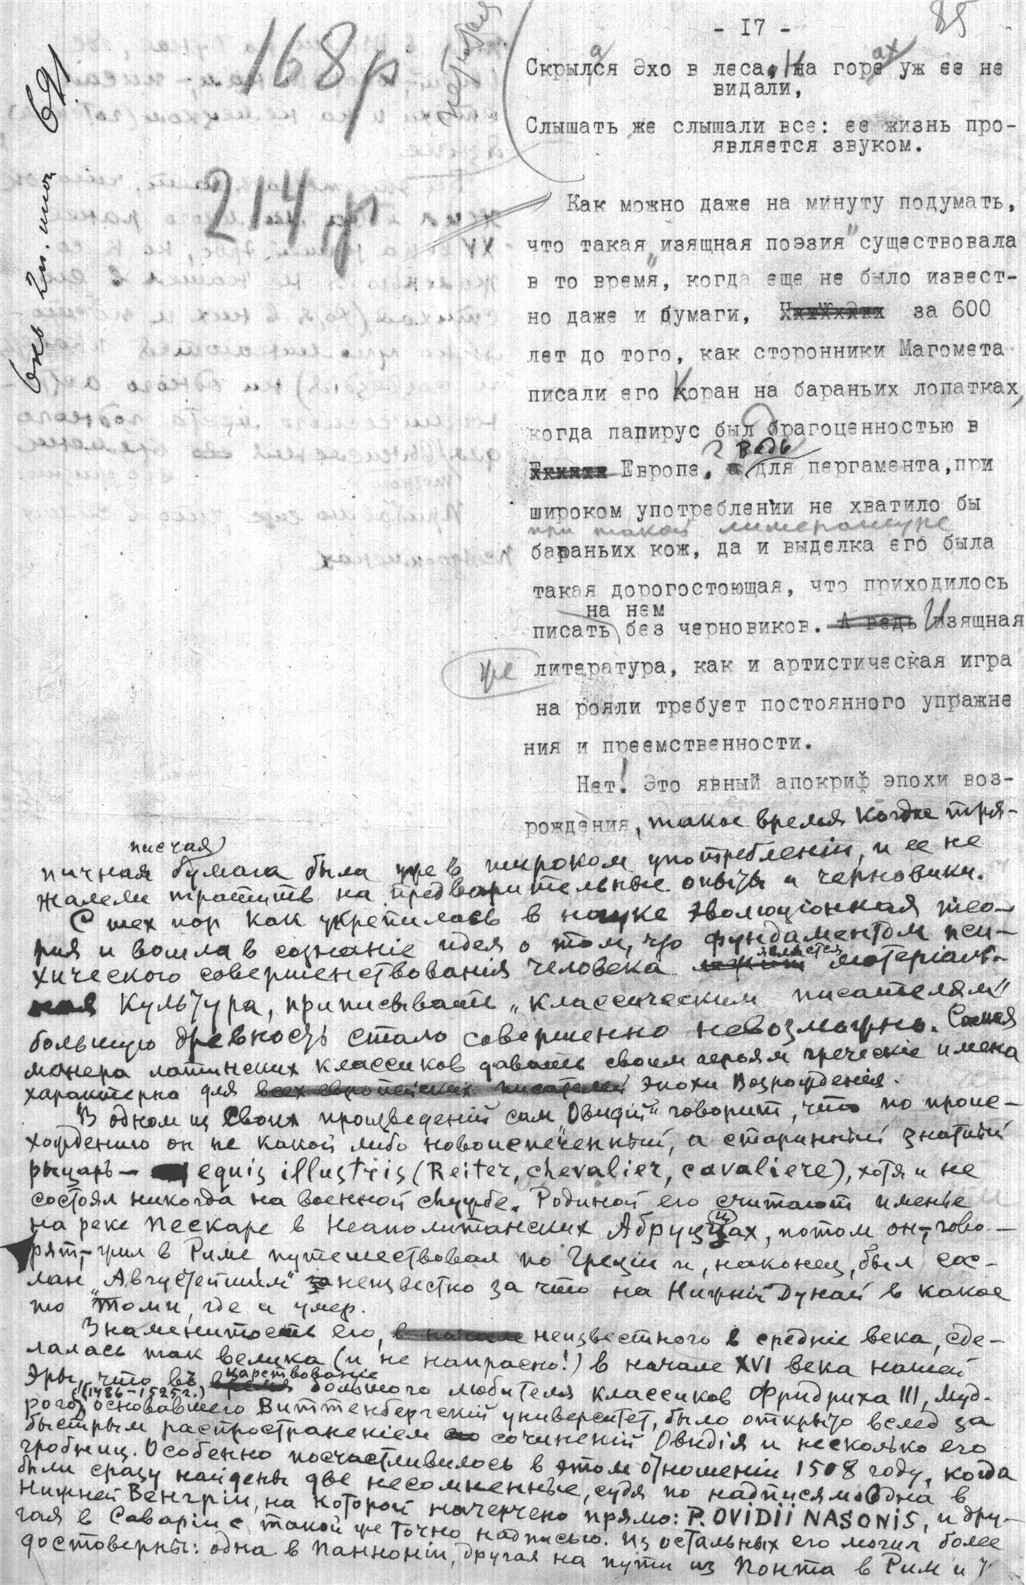 - 17 -
85
168 р
214 р
691
Скрылася Эхо в леса, На горах уж ее не
видали,
Слышать же слышали все: ее жизнь про-
является звуком.
Как можно даже на минуту подумать,
что такая "изящная поэзия" существовала
в то время, когда еще не было извест-
но даже и бумаги, за 600
лет до того, как сторонники Магомета
писали его Коран на бараньих лопатках,
когда папирус был драгоценностью в
Европе, ведь для пергамента, при
широком употреблении не хватило бы
при такой литературе
бараньих кож, да и выделка его была
такая дорогостоющая, что приходилось
на нем
писать без черновиков. А ведь Изящная
же литература, как и артистическая игра
на рояли требует постоянного упражне
ния и преемственности.
Нет! Это явный апокриф эпохи воз-
рождения, такое время когда тря-
писчая
пичная бумага была уже в широком употреблении, и ее не
жалели тратить на предварительные опыты и черновики.
С тех пор как укрепилась в науке эволюціонная тео-
рия и вошла в сознаніе идея о том, что фундаментом пси-
хического совершенствованія человека является матеріаль-
ная культура, приписывать „классическим писателям"
большую древность стало совершенно невозможно. Самая
манера латинских классиков давать своим героям греческіе имена
характерна для всех европейских писателей эпохи Возрожденія.
В одном из своих произведеній сам „Овидій" говорит, что по проис-
хожденію он не какой либо новоиспеченный, а старинный знатный
рыцарь — equis illustris (Reiter, chevalier, cavaliere), хотя и не
состоял никогда на военной службе. Родиной его считают именье
на реке Пескаре в Неаполитанских Абруццах, потом он,-гово-
рят,-жил в Риме путешествовал по Греціи и, наконец, был сос-
лан „Августейшим" неизвестно за что на Нижній Дунай в какое
то „Томи", где и умер.
Знаменитость его, в начале неизвестного в средніе века, сде-
лалась так велика (и не напрасно!) в начале XVI века нашей
эры, что въ царствованіе большого любителя классиков Фридриха III, Муд-
рого (1486-1525 г.) основавшего Виттенбергскій университет, было открыто вслед за
быстрым распространеніем сочиненій Овидія и несколько его
гробниц. Особенно посчастливилось в этом отношеніи 1508 году, когда
были сразу найдены две несомненные, судя по надписям: Одна в
Нижней Венгріи, на которой начерчено прямо: P. OVIDII NASONIS, и дру-
гая в Саваріи с такой же точно надписью. Из остальных его могил более
достоверны: одна в Панноніи, другая на пути из Понта в Рим и